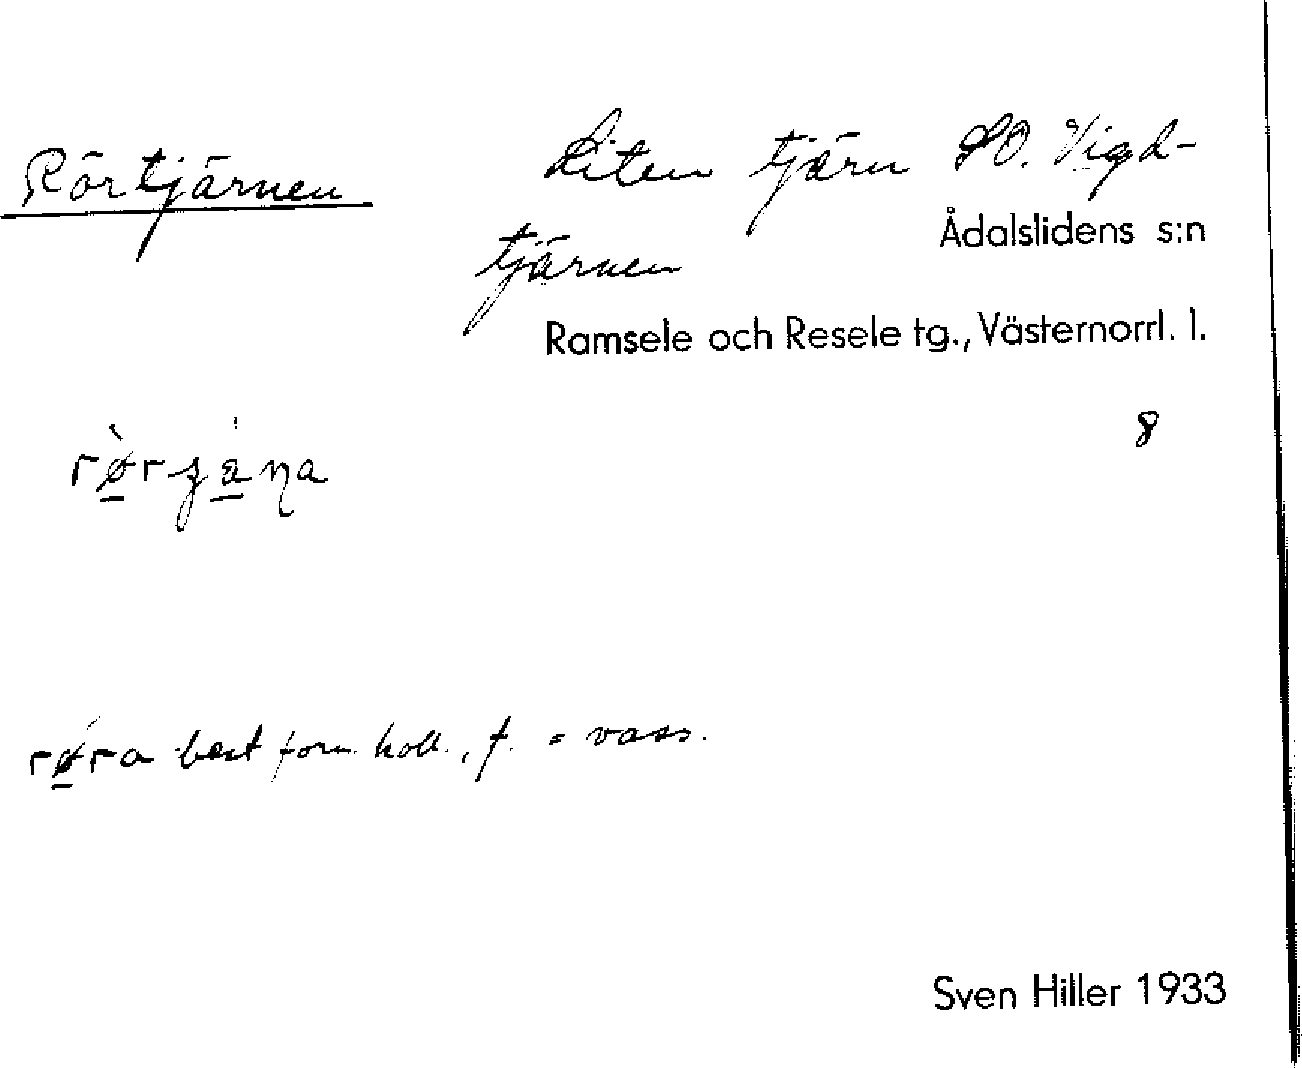 Rörtjärnen
Liten tjärn SO. Vigd-
tjärnen
Ådalslidens s:n
Ramsele och Resele tg., Västernorrl. l.
8
røra best form koll., f. = vass.
Sven Hiller 1933